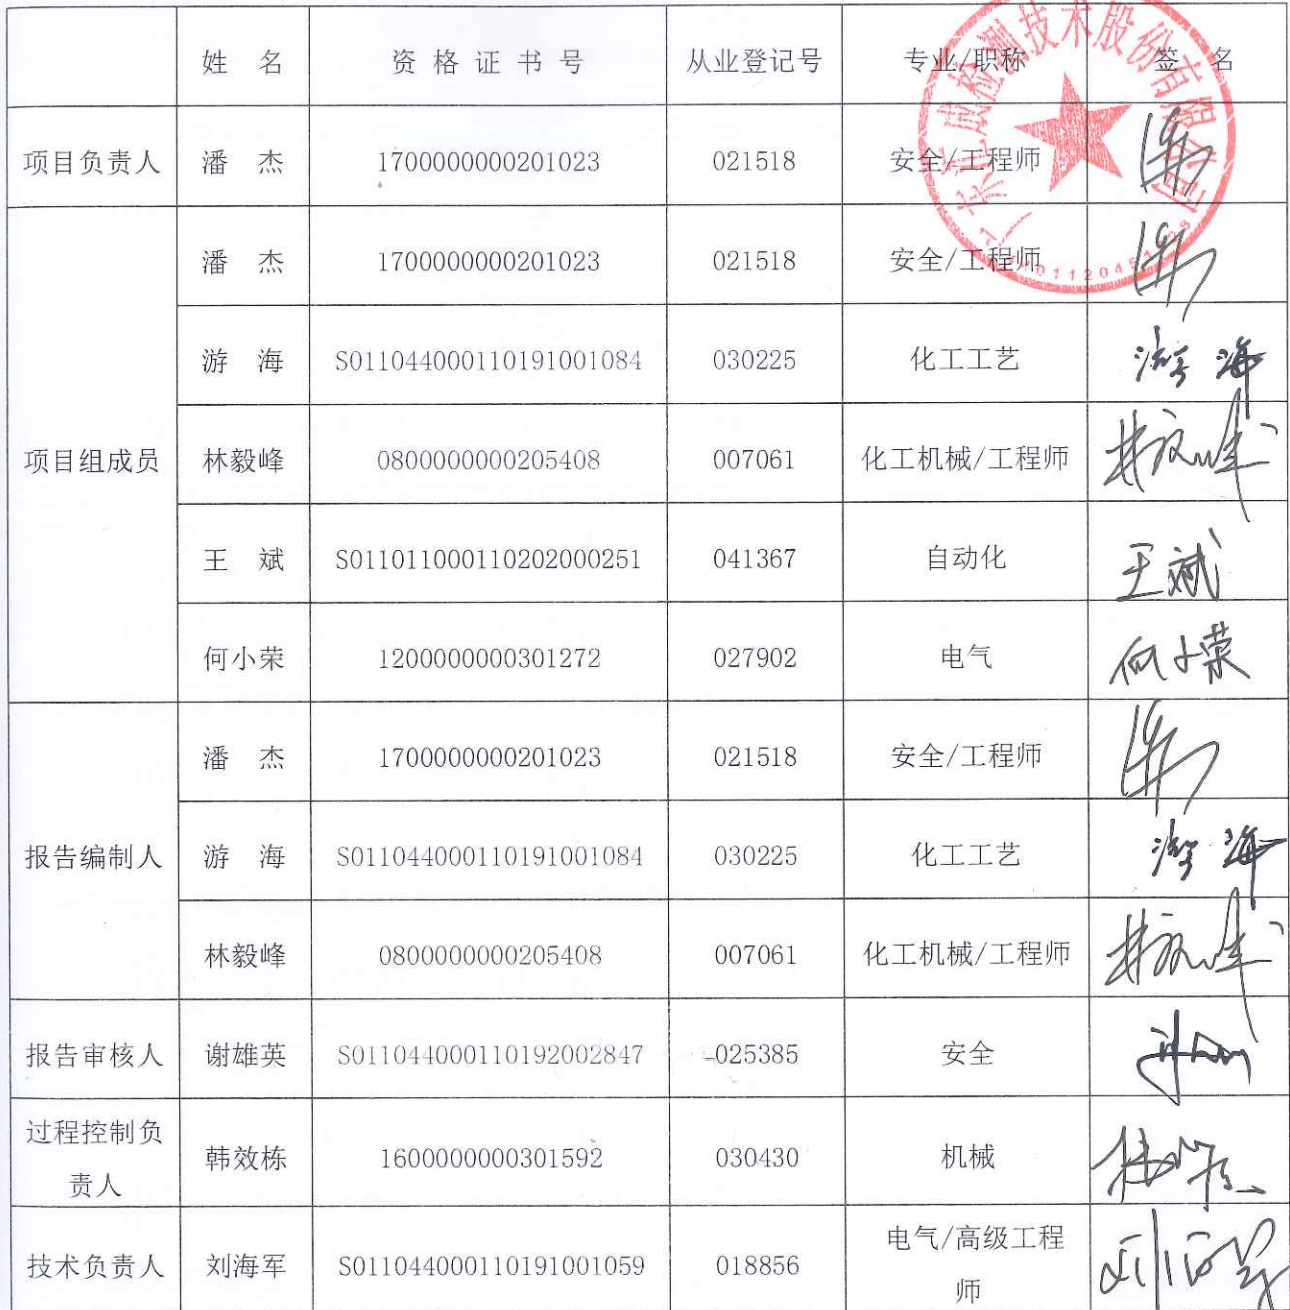 姓 名 资格证书号 从业登记号 专业/职称 签 名
项目负责人 潘 杰 1700000000201023 021518 安全/工程师
项目组成员 潘 杰 1700000000201023 021518 安全/工程师
游 海 S011044000110191001084 030225 化工工艺 游海
林毅峰 0800000000205408 007061 化工机械/工程师 林毅峰
王 斌 S011011000110202000251 041367 自动化 王斌
何小荣 1200000000301272 027902 电气 何小荣
报告编制人 潘 杰 1700000000201023 021518 安全/工程师
游 海 S011044000110191001084 030225 化工工艺 游海
林毅峰 0800000000205408 007061 化工机械/工程师 林毅峰
报告审核人 谢雄英 S011044000110192002847 025385 安全
过程控制负
责人 韩效栋 1600000000301592 030430 机械
技术负责人 刘海军 S011044000110191001059 018856 电气/高级工程
师 刘海军